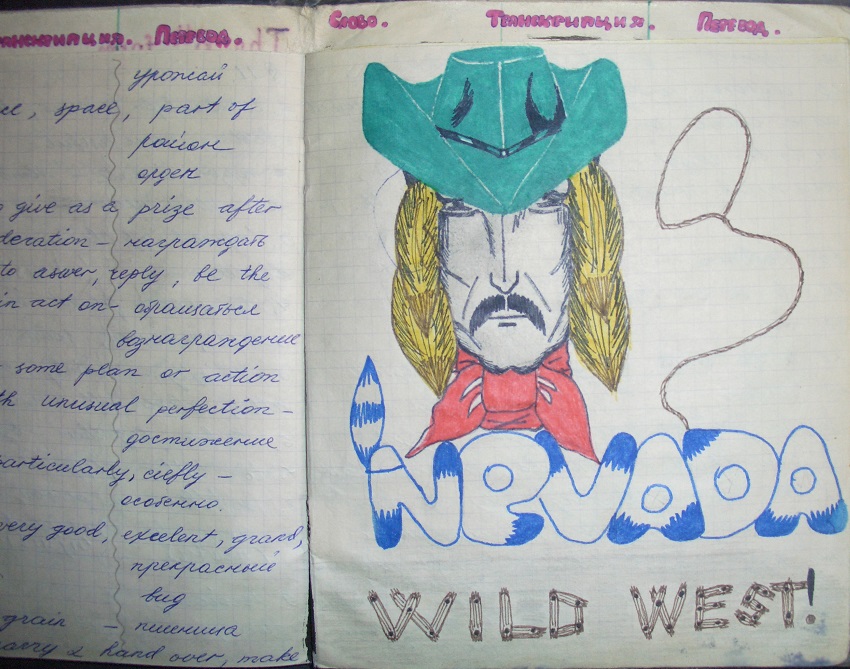 Транскрипция. Перевод.
урожай
space, part of
район
орден
give as a prize after
награждать
to aswer, reply, be the
in act on- обращаться
вознаграждение
some plan or action
unusual perfection-
достижение
particularly, ciefly -
особенно.
very good, excelent, grand,
прекрасный
вид
grain - пшеница
carry & hand over, make
Слово. Транскрипция. Перевод.
NEVADA
WILD WEST!